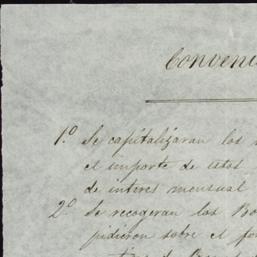 Conveni
1º Se capitalizaran los
el importe de estos
de interes mensual
2º Se recogeran los Bo
pidieron sobre el fo